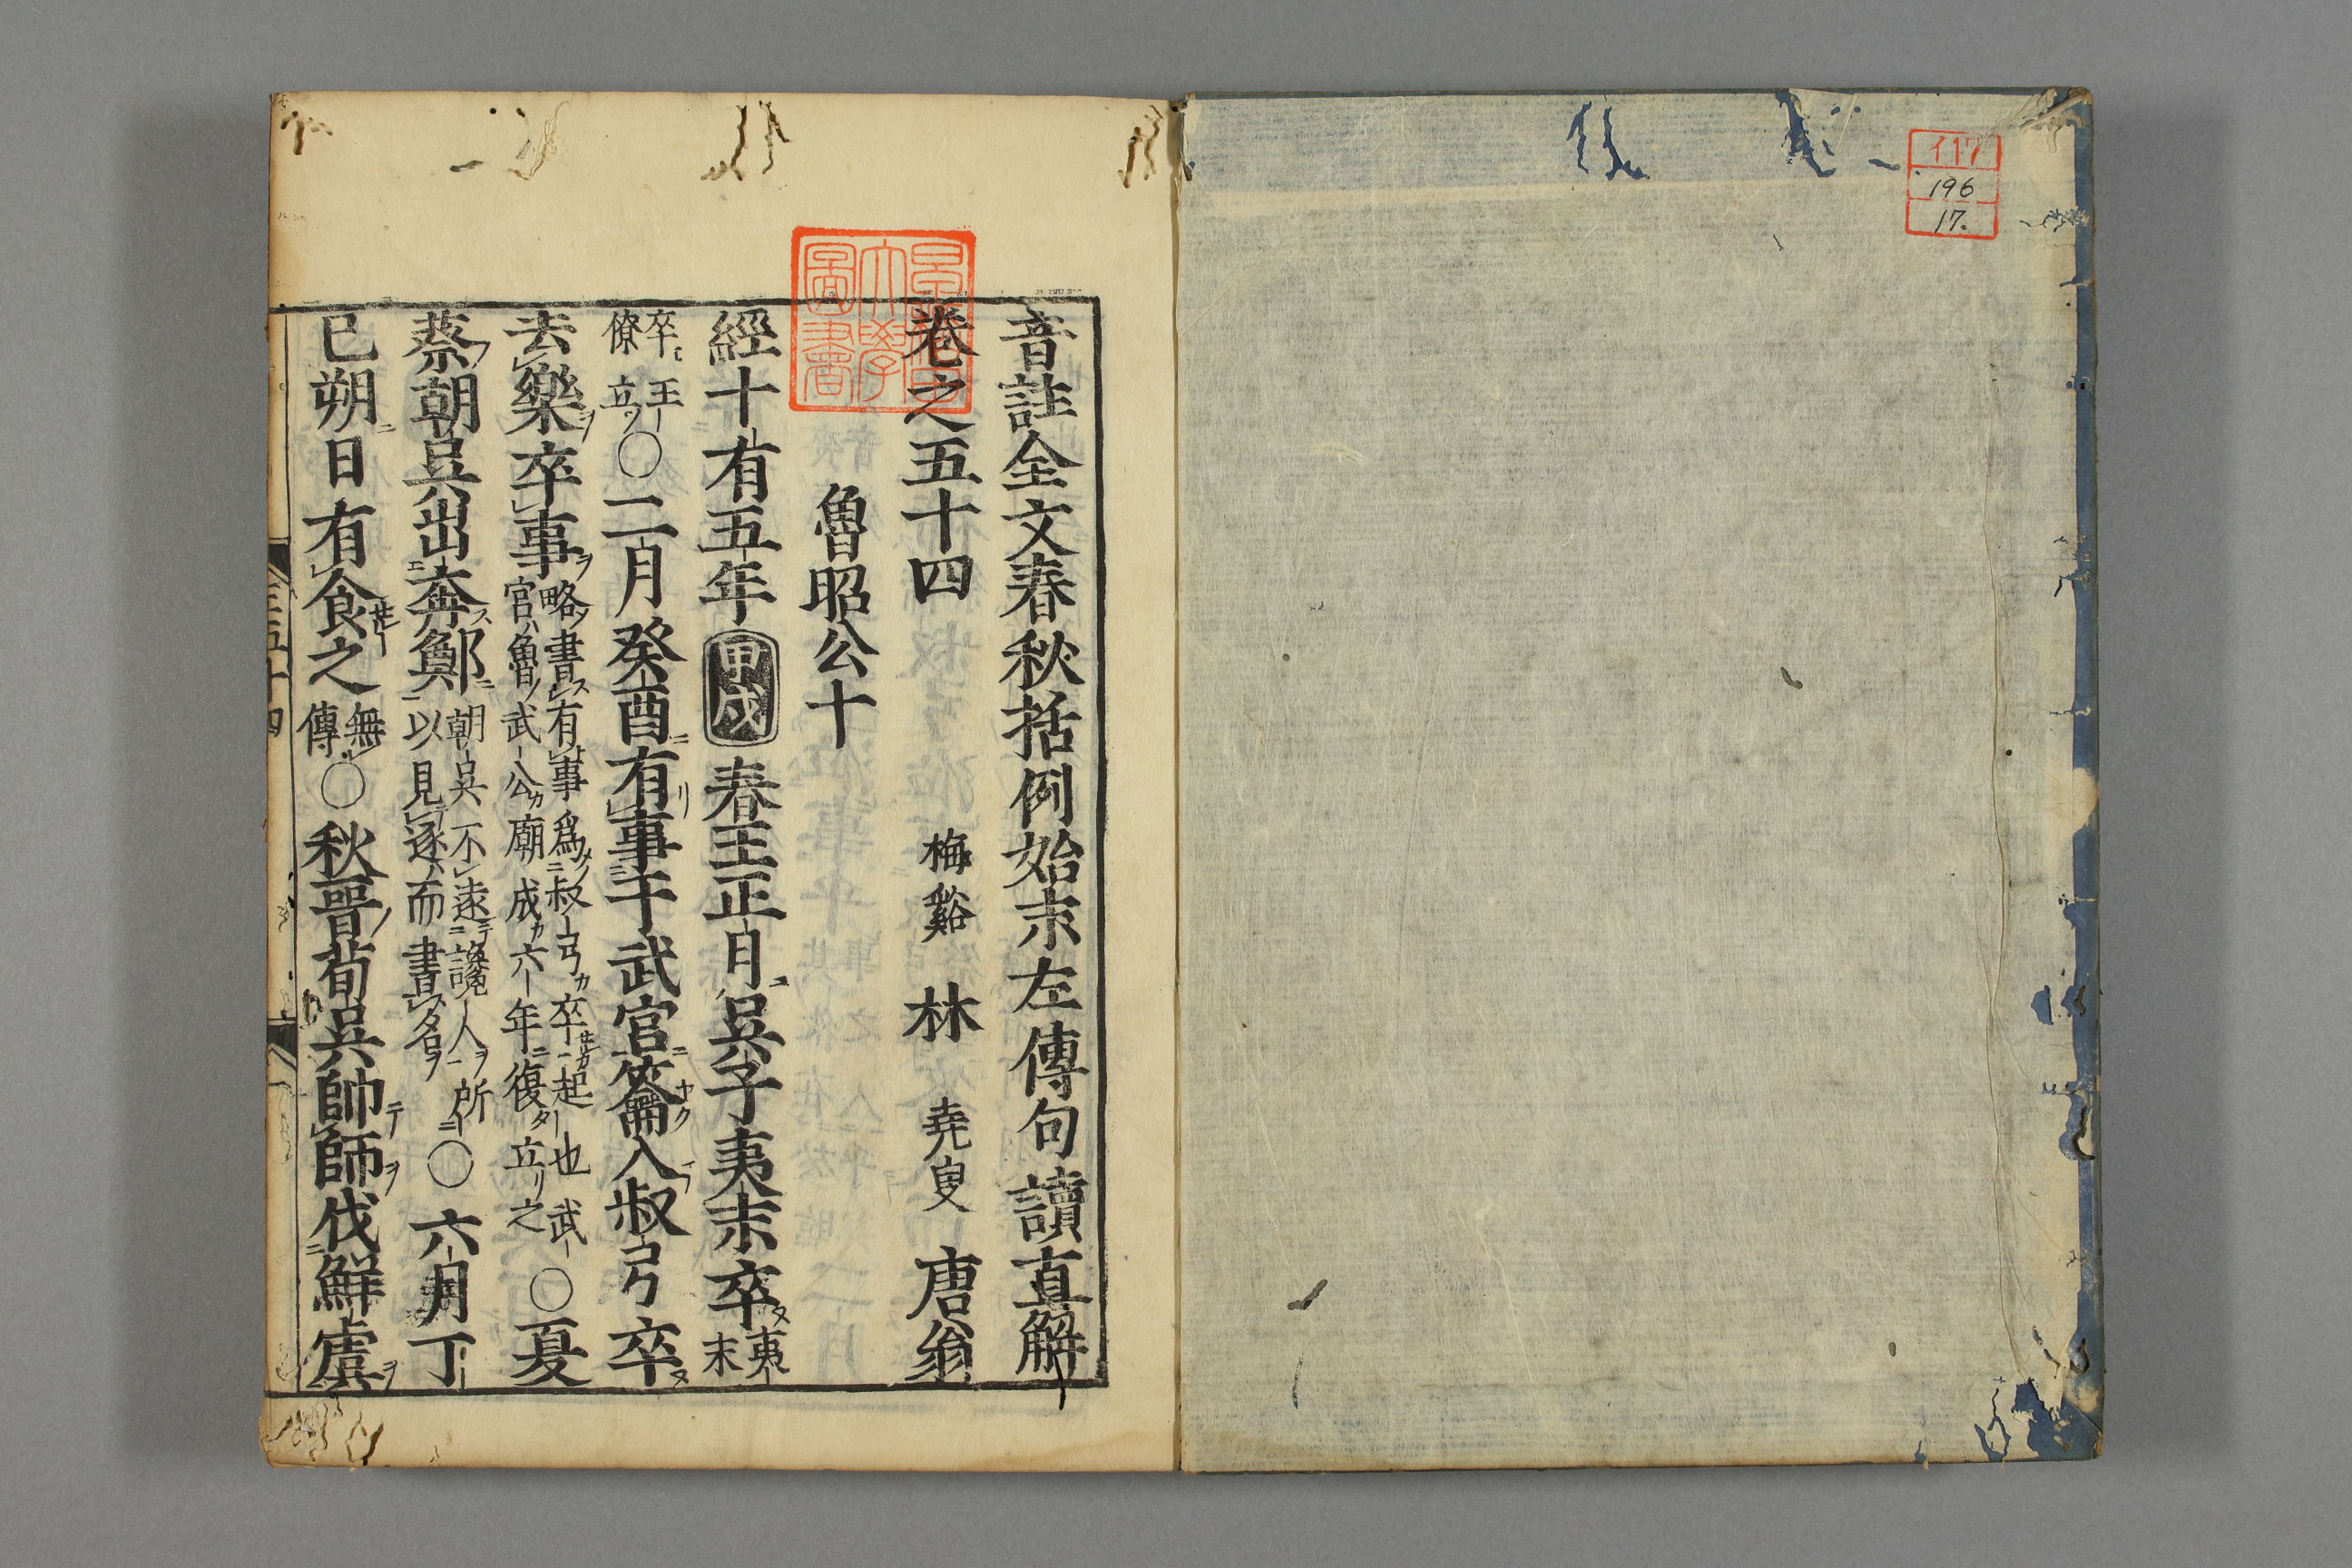 イ17
196
17.
音註全文春秋括例始末左傳句讀直解
卷之五十四 梅谿 林 堯叟 唐翁
魯昭公十
經十有五年 甲戌 春王正月吳子夷末卒 夷末
卒王僚立○二月癸酉有事于武宮籥入叔弓卒
去樂卒事 略書有事爲叔弓卒起也武宮魯武公廟成六年復立之 ○夏
蔡朝吳出奔鄭 朝吳不遠讒人所以見逐而書名 ○六月丁
巳朔日有食之 無傳 ○秋晉荀吳帥師伐鮮虞